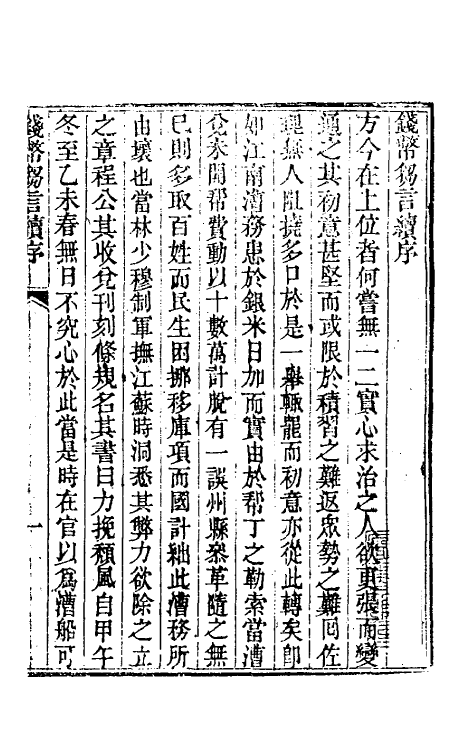 錢幣芻言續序
方今在上位者何嘗無一二實心求治之人欲更張而變
通之其初意甚堅而或限於積習之難返眾勢之難回佐
理無人阻撓多口於是一舉輒罷而初意亦從此轉矣即
如江南漕務患於銀米日加而實由於帮丁之勒索當漕
兌米開帮費動以十數萬計脫有一誤州縣叅革隨之無
已則多取百姓而民生困挪移庫項而國計絀此漕務所
由壞也當林少穆制軍撫江蘇時洞悉其弊力欲除之立
之章程公其收兌刊刻條規名其書曰力挽頹風自甲午
冬至乙未春無日不究心於此當是時在官以為漕船可
錢幣芻言續序
一